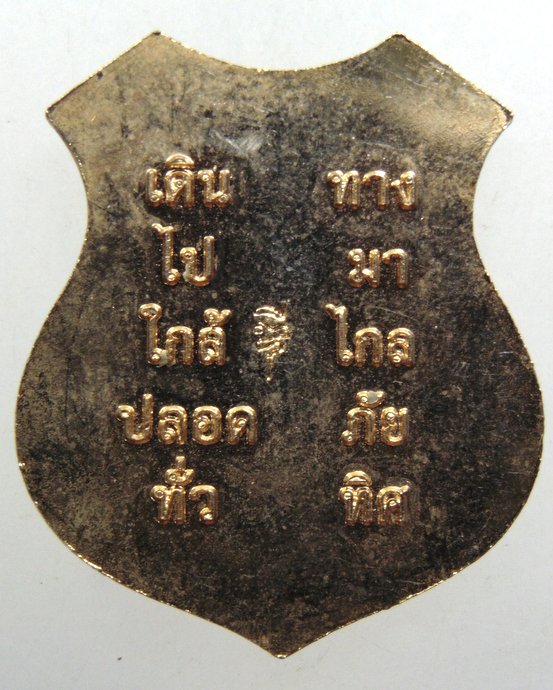 เดิน ทาง
ไป มา
ใกล้ ไกล
ปลอด ภัย
ทั่ว ทิศ